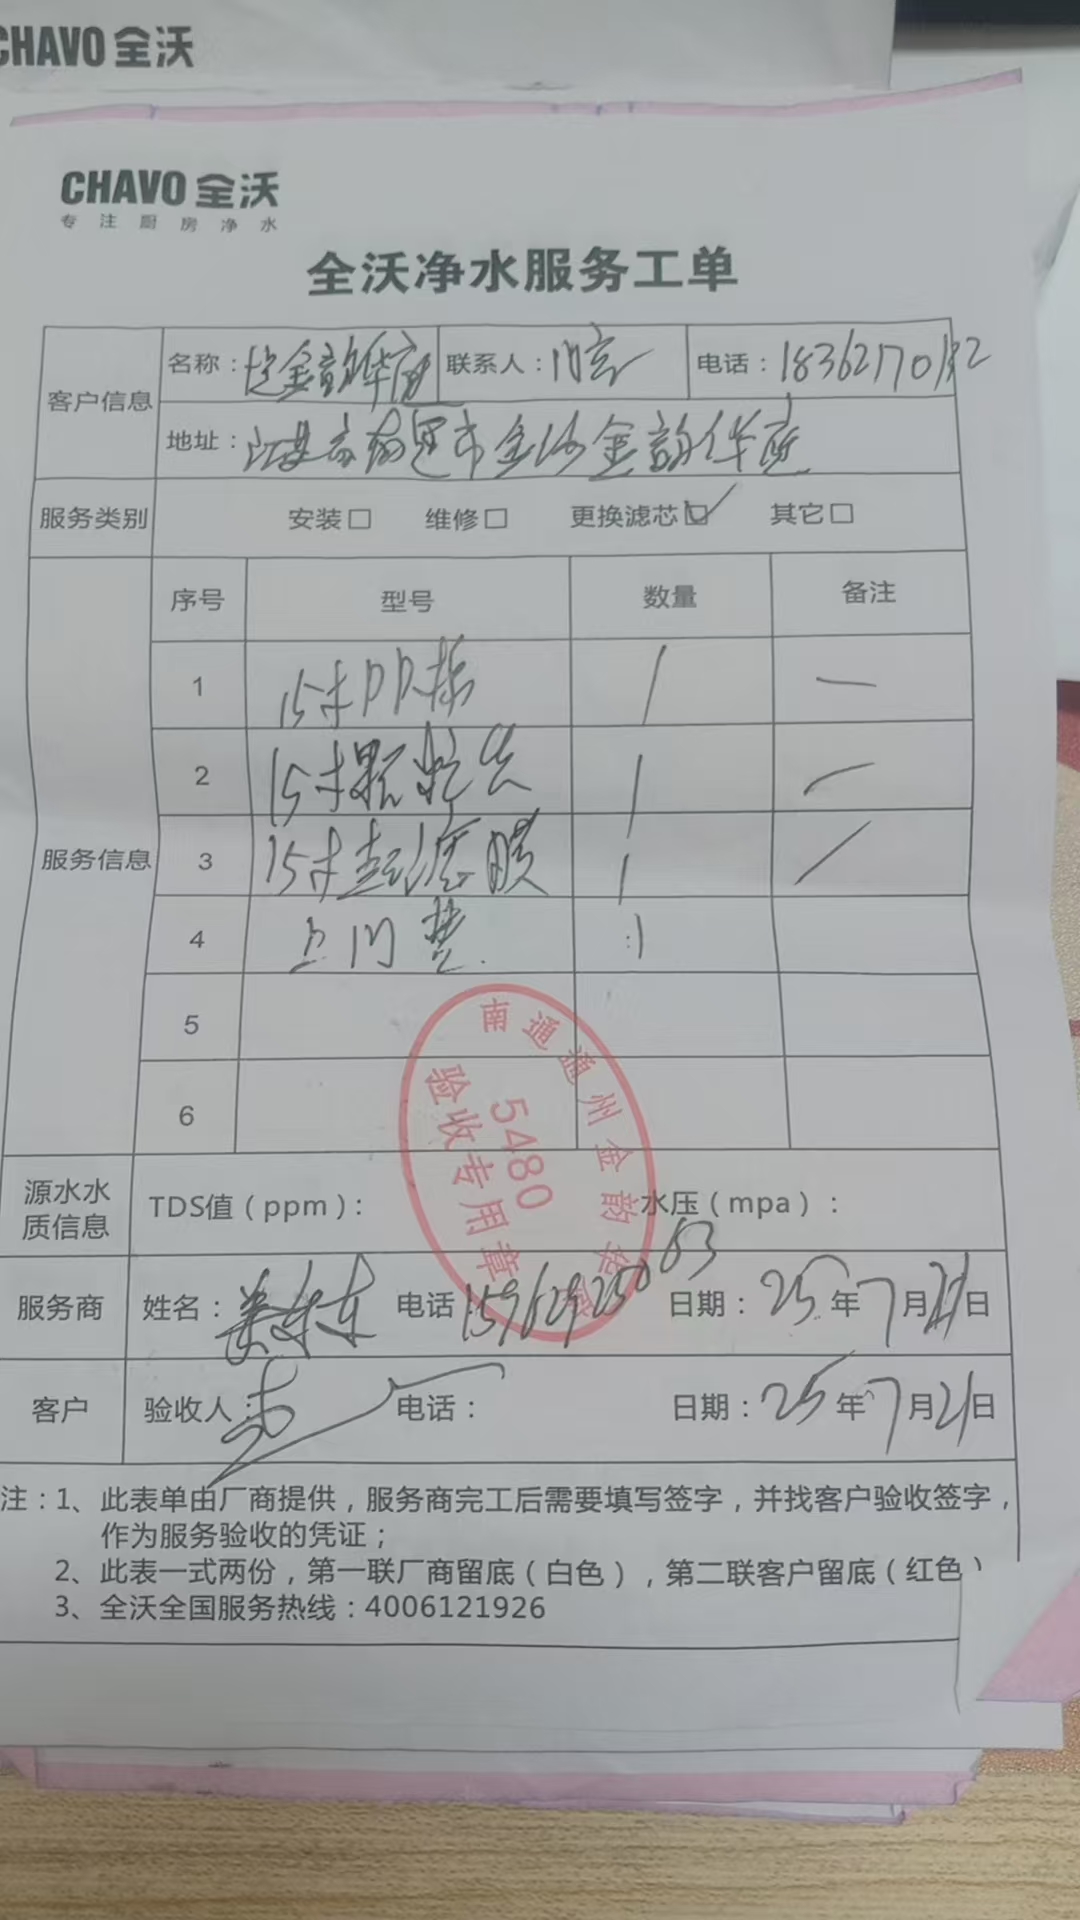 CHAVO 全沃
CHAVO 全沃
专注厨房净水
全沃净水服务工单
客户信息
名称：金韵华府 联系人：店长 电话：18362170132
地址：江苏省南通市金沙金韵华府
服务类别 安装□ 维修□ 更换滤芯☑ 其它□
服务信息
序号 型号 数量 备注
1 15寸PP棉 1 一
2 15寸颗粒炭 1 一
3 15寸超滤膜 1 /
4 上门费 1
5
6
南通通州金韵华
5480
验收专用章
源水水质信息 TDS值（ppm）： 水压（mpa）：
服务商 姓名： 电话 15962925063 日期：25年7月21日
客户 验收人： 电话： 日期：25年7月21日
注：1、此表单由厂商提供，服务商完工后需要填写签字，并找客户验收签字，
作为服务验收的凭证；
2、此表一式两份，第一联厂商留底（白色），第二联客户留底（红色）
3、全沃全国服务热线：4006121926